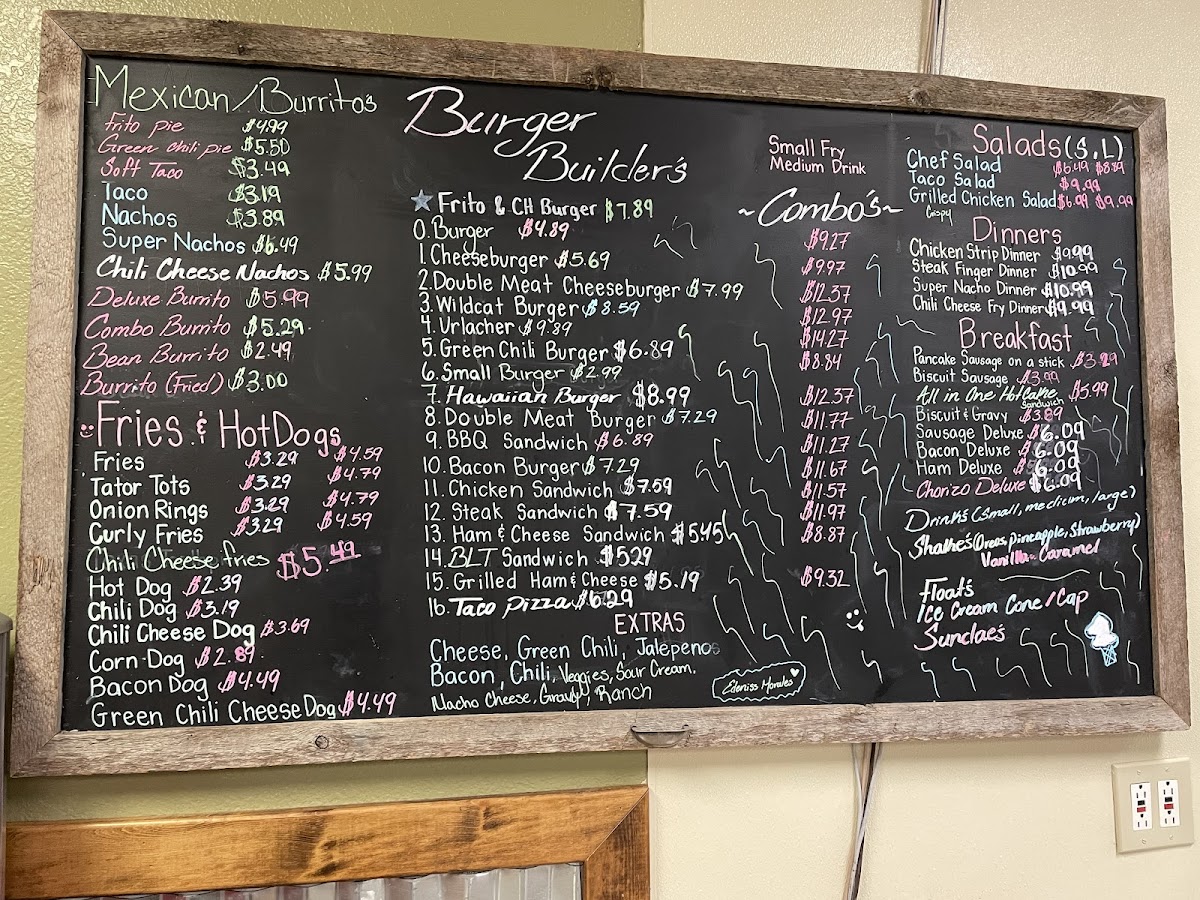 Mexican/Burrito's
Frito pie $4.99
Green chili pie $5.50
Soft Taco $3.49
Taco $3.19
Nachos $3.89
Super Nachos $6.49
Chili Cheese Nachos $5.99
Deluxe Burrito $5.99
Combo Burrito $5.29
Bean Burrito $2.49
Burrito (Fried) $3.00
Fries & HotDogs
Fries $3.29 $4.59
Tator Tots $3.29 $4.79
Onion Rings $3.29 $4.79
Curly Fries $3.29 $4.59
Chili Cheese fries $5.49
Hot Dog $2.39
Chili Dog $3.19
Chili Cheese Dog $3.69
Corn-Dog $2.89
Bacon Dog $4.49
Green Chili Cheese Dog $4.49
Burger
Builder's
★ Frito & CH Burger $7.89
0. Burger $4.89
1. Cheeseburger $5.69
2. Double Meat Cheeseburger $7.99
3. Wildcat Burger $8.59
4. Urlacher $9.89
5. Green Chili Burger $6.89
6. Small Burger $2.99
7. Hawaiian Burger $8.99
8. Double Meat Burger $7.29
9. BBQ Sandwich $6.89
10. Bacon Burger $7.29
11. Chicken Sandwich $7.59
12. Steak Sandwich $7.59
13. Ham & Cheese Sandwich $5.45
14. BLT Sandwich $5.29
15. Grilled Ham & Cheese $5.19
16. Taco pizza $6.29
EXTRAS
Cheese, Green Chili, Jalepenos
Bacon, Chili, Veggies, Sour Cream,
Nacho Cheese, Gravy, Ranch
Edeniss Morales
Small Fry
Medium Drink
~Combo's~
$9.27
$9.97
$12.37
$12.97
$14.27
$8.84
$12.37
$11.77
$11.27
$11.67
$11.57
$11.97
$8.87
$9.32
Salads (S, L)
Chef Salad $6.49 $8.89
Taco Salad $9.99
Grilled Chicken Salad $6.99 $9.99
Crispy
Dinners
Chicken Strip Dinner $9.99
Steak Finger Dinner $10.99
Super Nacho Dinner $10.99
Chili Cheese Fry Dinner $9.99
Breakfast
Pancake Sausage on a stick $3.29
Biscuit Sausage $3.99
All in One HotCake Sandwich $5.99
Biscuit & Gravy $3.89
Sausage Deluxe $6.09
Bacon Deluxe $6.09
Ham Deluxe $6.09
Chorizo Deluxe $6.09
Drinks (Small, medium, large)
Shake's (Oreo, pineapple, Strawberry)
Vanilla- Caramel
Float's
Ice Cream Cone/Cap
Sundae's